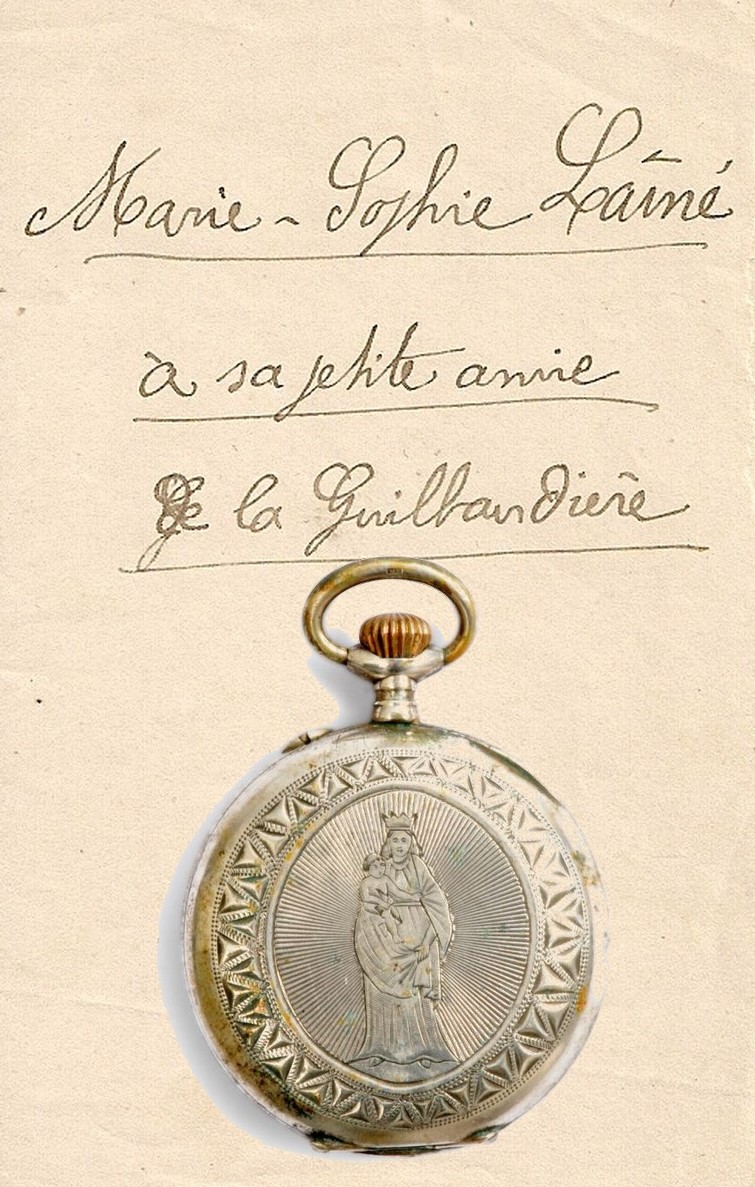 Marie - Sophie Laîné
à sa petite amie
de la Guilbaudière